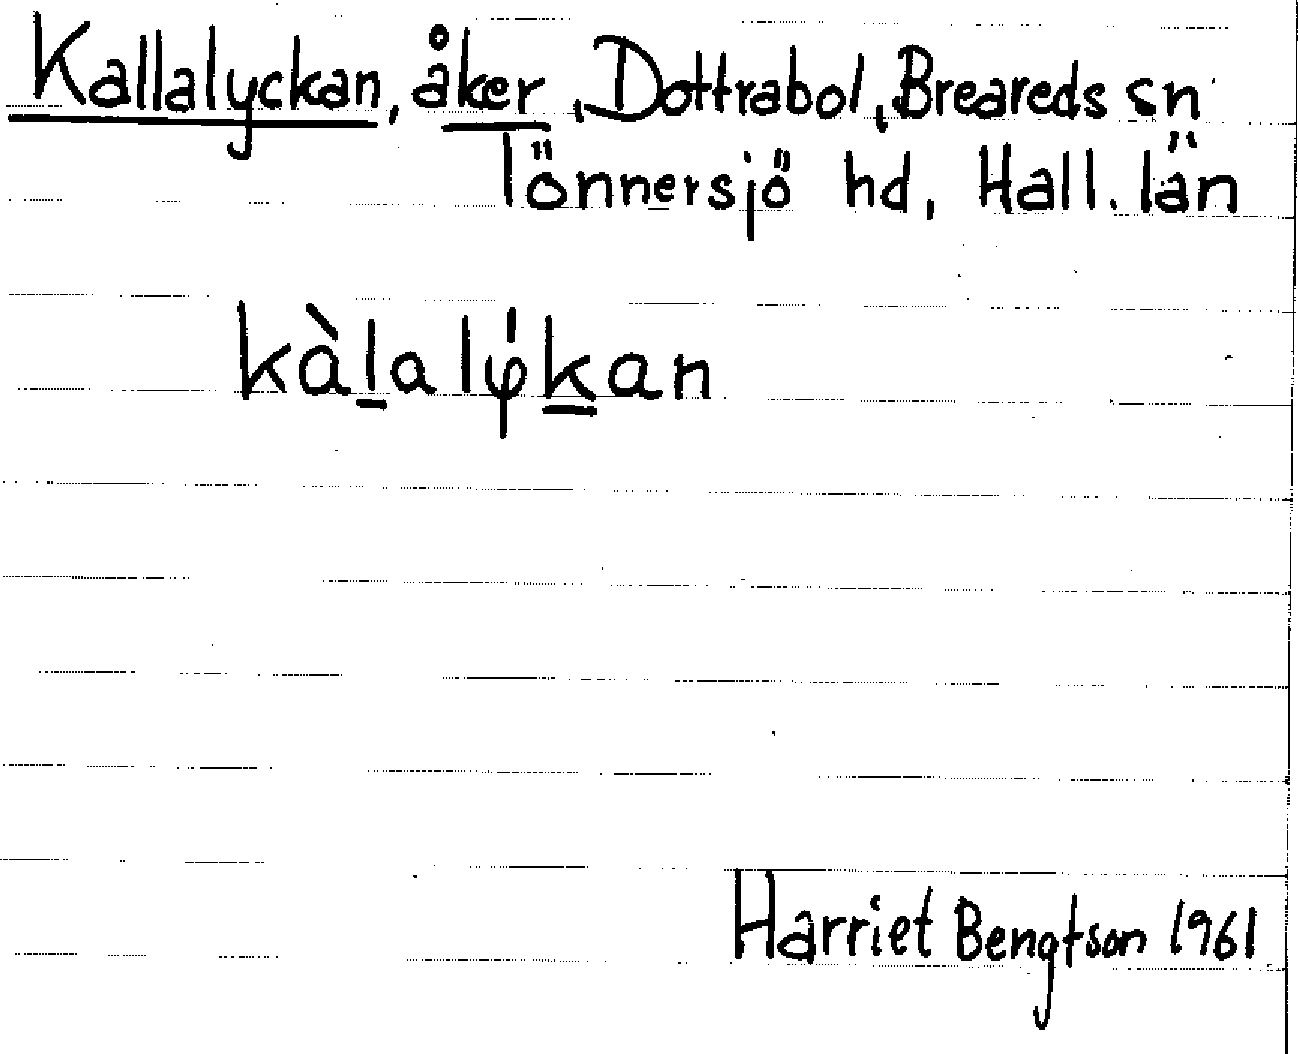 Kallalyckan, åker, Dottrabol, Breareds sn
Tönnersjö hd, Hall. län
kàlalýkan
Harriet Bengtson 1961